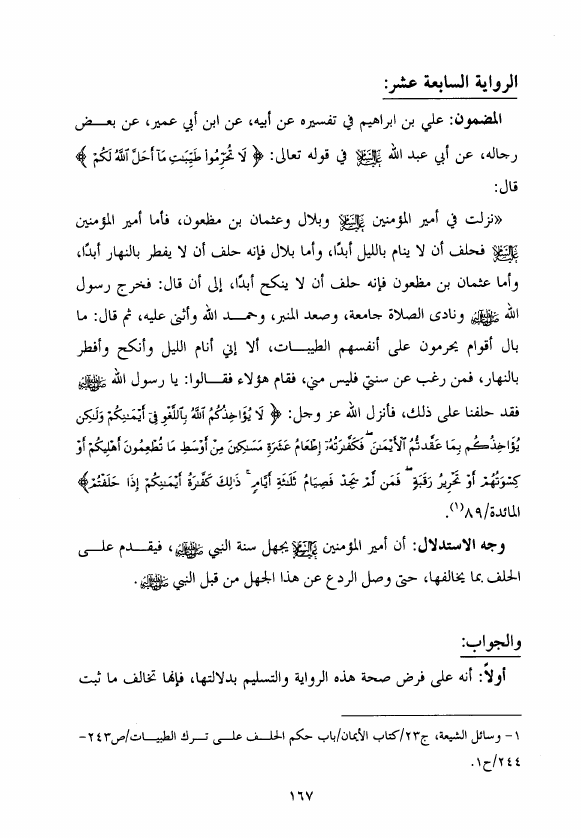 الرواية السابعة عشر:
المضمون: علي بن ابراهيم في تفسيره عن أبيه، عن ابن أبي عمير، عن بعض
رجاله، عن أبي عبد الله عليه السلام في قوله تعالى: ﴿ لَا تُحَرِّمُوا۟ طَيِّبَـٰتِ مَآ أَحَلَّ ٱللَّهُ لَكُمْ ﴾
قال:
«نزلت في أمير المؤمنين عليه السلام وبلال وعثمان بن مظعون، فأما أمير المؤمنين
عليه السلام فحلف أن لا ينام بالليل أبدًا، وأما بلال فإنه حلف أن لا يفطر بالنهار أبدًا،
وأما عثمان بن مظعون فإنه حلف أن لا ينكح أبدًا، إلى أن قال: فخرج رسول
الله ﷺ ونادى الصلاة جامعة، وصعد المنبر، وحمد الله وأثنى عليه، ثم قال: ما
بال أقوام يحرمون على أنفسهم الطيبات، ألا إني أنام الليل وأنكح وأفطر
بالنهار، فمن رغب عن سنتي فليس مني، فقام هؤلاء فقالوا: يا رسول الله ﷺ
فقد حلفنا على ذلك، فأنزل الله عز وجل: ﴿ لَا يُؤَاخِذُكُمُ ٱللَّهُ بِٱللَّغْوِ فِىٓ أَيْمَـٰنِكُمْ وَلَـٰكِن
يُؤَاخِذُكُم بِمَا عَقَّدتُّمُ ٱلْأَيْمَـٰنَ ۖ فَكَفَّـٰرَتُهُۥٓ إِطْعَامُ عَشَرَةِ مَسَـٰكِينَ مِنْ أَوْسَطِ مَا تُطْعِمُونَ أَهْلِيكُمْ أَوْ
كِسْوَتُهُمْ أَوْ تَحْرِيرُ رَقَبَةٍ ۖ فَمَن لَّمْ يَجِدْ فَصِيَامُ ثَلَـٰثَةِ أَيَّامٍ ۚ ذَٰلِكَ كَفَّـٰرَةُ أَيْمَـٰنِكُمْ إِذَا حَلَفْتُمْ ﴾
المائدة/٨٩(١).
وجه الاستدلال: أن أمير المؤمنين عليه السلام يجهل سنة النبي ﷺ، فيقدم على
الحلف بما يخالفها، حتى وصل الردع عن هذا الجهل من قبل النبي ﷺ.
والجواب:
أولاً: أنه على فرض صحة هذه الرواية والتسليم بدلالتها، فإنها تخالف ما ثبت
١- وسائل الشيعة، ج٢٣/كتاب الأيمان/باب حكم الحلف على ترك الطيبات/ص٢٤٣-
٢٤٤/ح١.
١٦٧